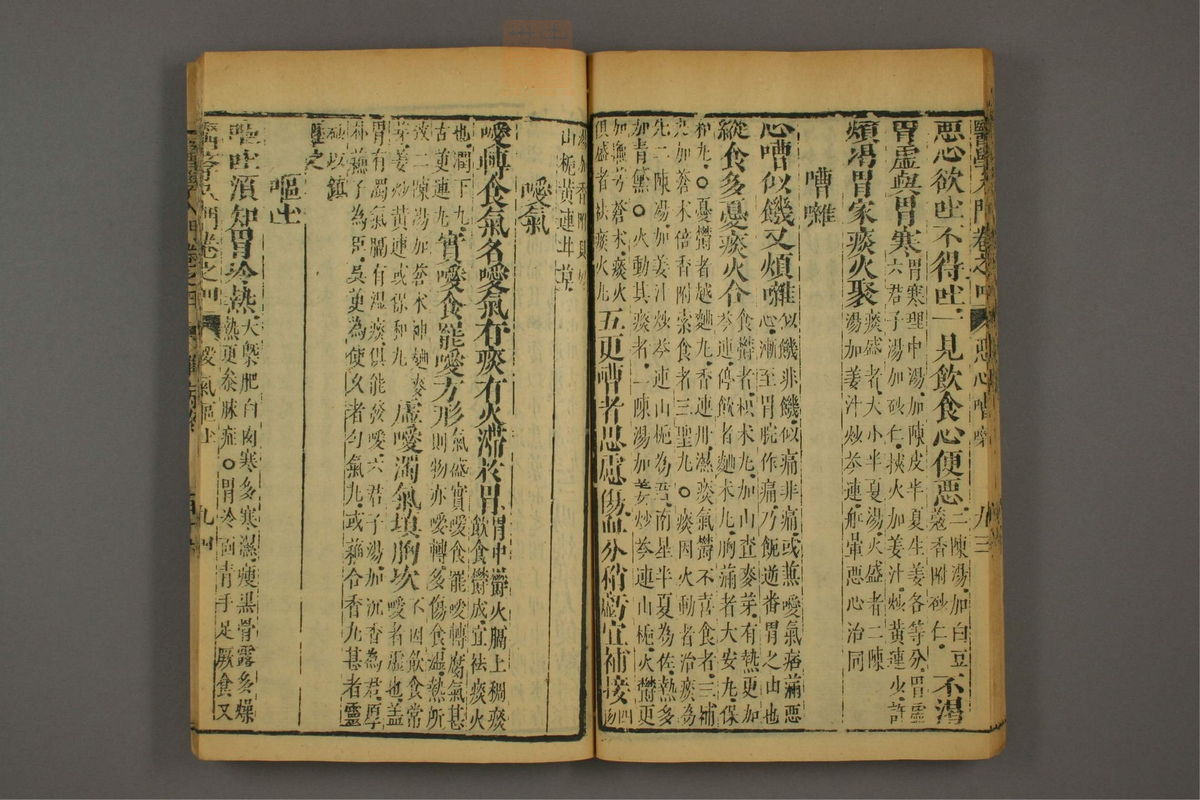 醫學入門 卷之四 惡心嘈雜 九三
惡心欲吐不得吐一見飲食心便惡二陳湯加白豆蔻香附砂仁不渴
胃虛與胃寒胃寒理中湯加陳皮半夏生姜各等分胃虛六君子湯加砂仁挾火加姜汁炒黃連少許
煩渴胃家痰火聚痰盛者大小半夏湯火盛者二陳湯加姜汁炒芩連眩暈惡心治同
嘈雜
心嘈似饑又煩雜似饑非饑似痛非痛或兼噯氣痞滿惡心漸至胃脘作痛乃飥逝番胃之由也
縱食多憂痰火合食鬱者枳朮九加山查麥芽有熱更加芩連停飲者麯朮九胸滿者大安九保
和九○憂鬱者越麯九香連丹濕痰氣鬱不喜食者三補九加蒼朮倍香附素食者三聖九○痰因火動者治痰為
先二陳湯加姜汁炒芩連山梔為君南星半夏為佐熱多加青黛○火動其痰者二陳湯加姜炒芩連山梔火鬱更
加蒼朮痰火俱盛者祛痰火九五更嘈者思慮傷血分稍虧宜補接四物
湯加香附
山梔黃連甘草
噯氣
噯轉食氣名噯氣有痰有火滯於胃胃中鬱火膈上稠痰飲食鬱成宜祛痰火
也潤下九實噯食罷噯方形氣盛實噯食罷噯轉腐氣甚則物亦噯轉多傷食濕熱所
致二陳湯加蒼朮神麯麥芽姜炒黃連或保和九虛噯濁氣填胸次不因飲食常噯者虛也盖
胃有濁氣膈有濕痰俱能發噯六君子湯加沉香為君厚朴蘇子為臣吳萸為使久者勻氣九或蘇合香九甚者靈
砂以鎮
墜之
嘔吐
嘔吐須知胃冷熱大槩肥白肉寒多寒濕瘦黑骨露多燥熱更叅脉症○胃冷面青手足厥食又
卷之四 噯氣嘔吐 九四